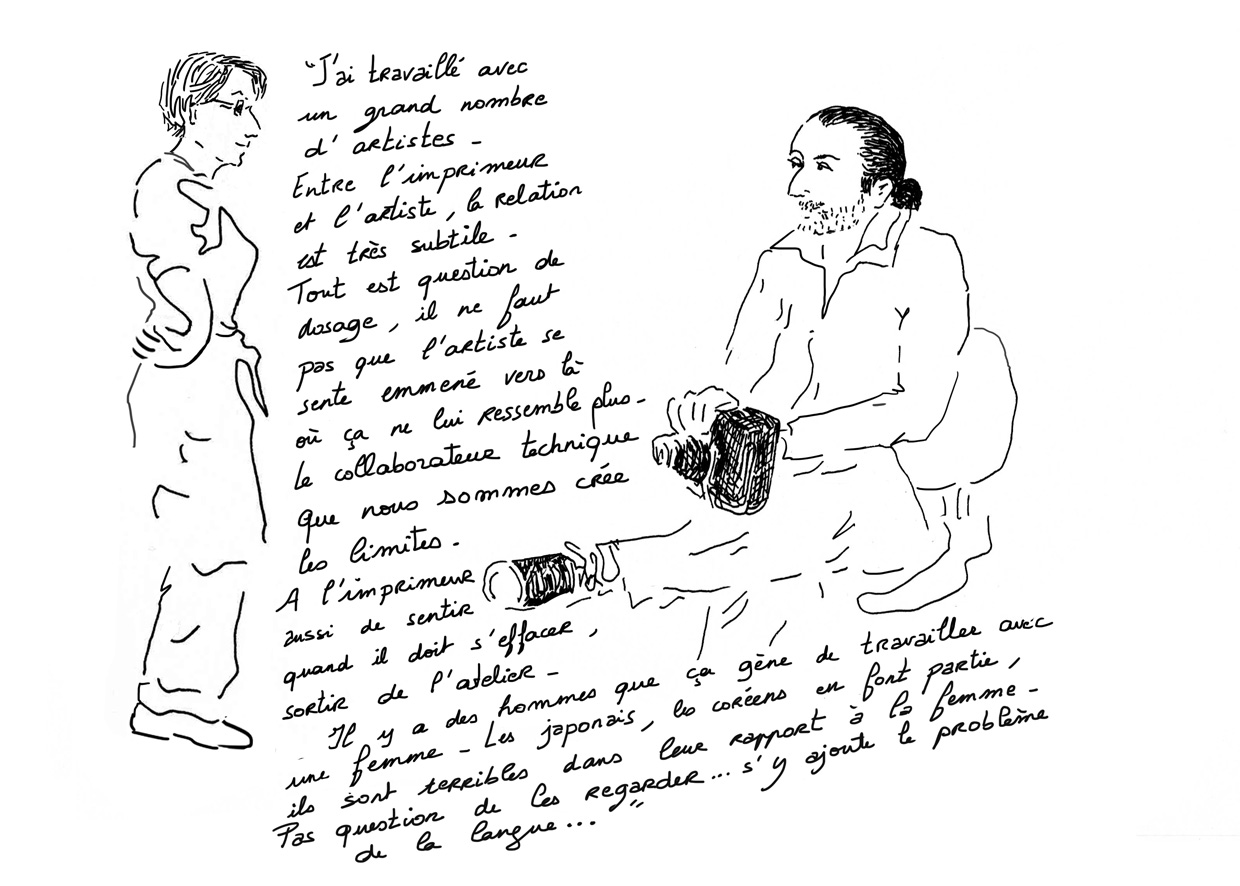 "J'ai travaillé avec
un grand nombre
d'artistes -
Entre l'imprimeur
et l'artiste, la relation
est très subtile -
Tout est question de
dosage, il ne faut
pas que l'artiste se
sente emmené vers là
où ça ne lui ressemble plus -
le collaborateur technique
que nous sommes crée
les limites -
A l'imprimeur
aussi de sentir
quand il doit s'effacer,
sortir de l'atelier -
Il y a des hommes que ça gène de travailler avec
une femme - Les japonais, les coréens en font partie,
ils sont terribles dans leur rapport à la femme -
Pas question de les regarder... s'y ajoute le problème
de la langue... "